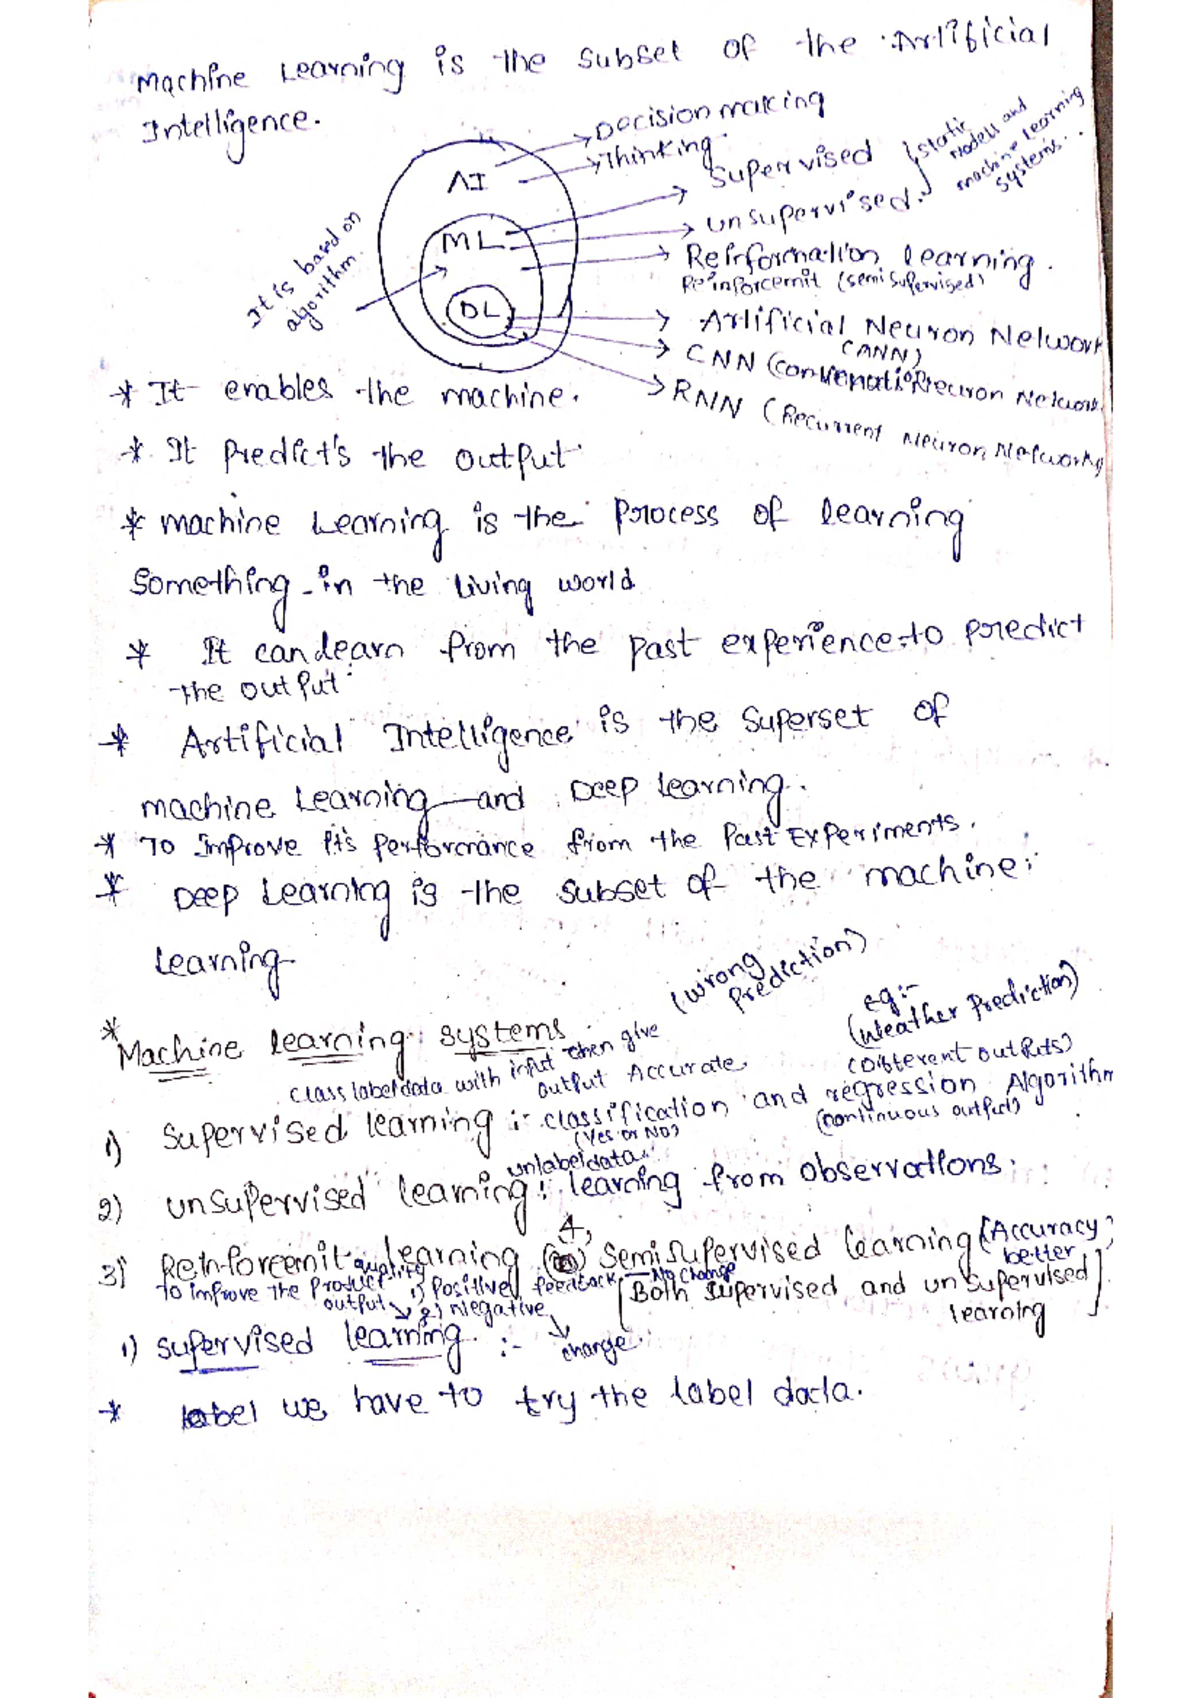 Machine Learning is the subset of the Artificial
Intelligence.
Decision making
Thinking
AI
Supervised
unsupervised.
(Static
Modell and
machine learning
systems..
ML
Reinformation learning.
Reinforcemnit (semi supervised)
It is based on
algorithm.
DL
Artificial Neuron Network
(ANN)
CNN (convenati Neuron Network
RNN (Recurrent Neuron Networks
* It enables the machine.
* It Predict's the output
* machine Learning is the Process of learning
Something in the living world
* It can learn from the past experience to predict
the output
* Artificial Intelligence is the Superset of
machine Learning and Deep learning.
* To Improve it's performance from the Past Experiments.
* Deep Learning is the subset of the machine
Learning
(wrong
Prediction)
eg:-
(Weather Prediction)
* Machine learning systems
class label data with input then give
output Accurate
(Different outputs)
1) Supervised learning :- classification and regression Algorithm
(Yes or No)
(continuous output)
unlabel data
2) unsupervised learning : learning from observations.
4,
3) Reinforcemnit learning (or) semi supervised learning (Accuracy
better
quality
to improve the Product 1) Positive feedback No change
output 2) Negative
change
[Both supervised and unsupervised
learning]
1) supervised learning :-
* label we have to try the label data.